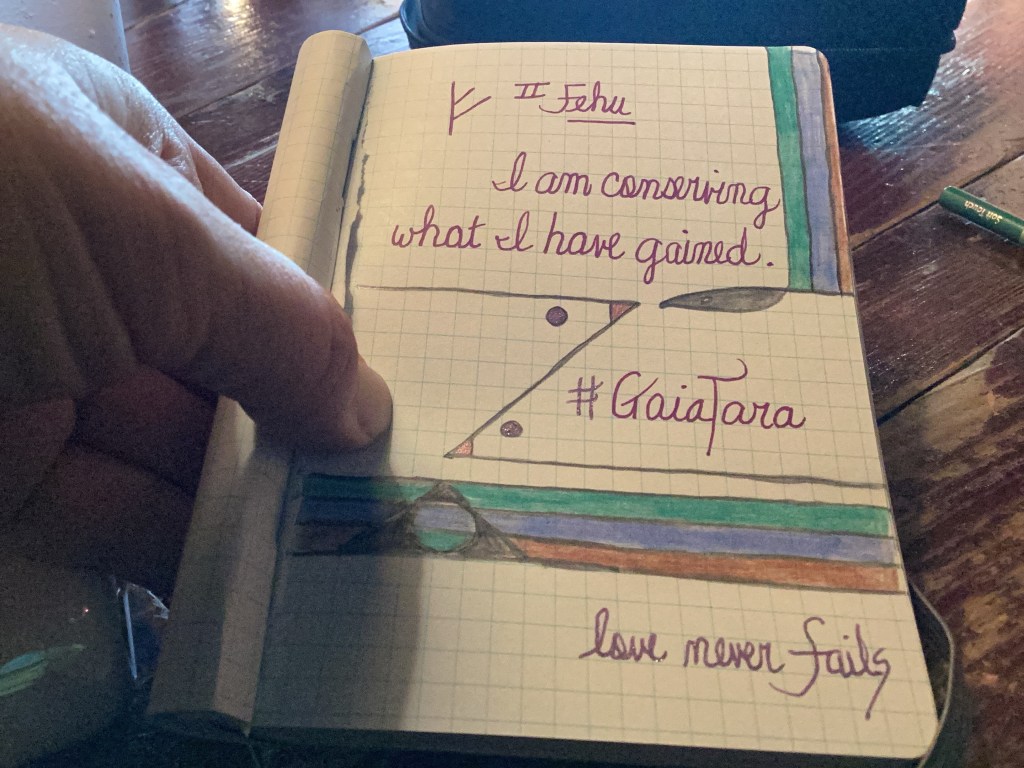 ᚠ II Fehu
I am conserving
what I have gained.
#GaiaTara
love never fails
Soft Touch